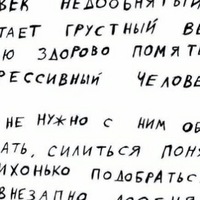 ВЕК НЕДООБНЯТЫЙ
ТАЕТ ГРУСТНЫЙ ВЕ
Ю ЗДОРОВО ПОМЯТ
РЕССИВНЫЙ ЧЕЛОВЕ
НЕ НУЖНО С НИМ ОБ
АТЬ, СИЛИТЬСЯ ПОНЯ
ИХОНЬКО ПОДОБРАТЬС
ВНЕЗАПНО